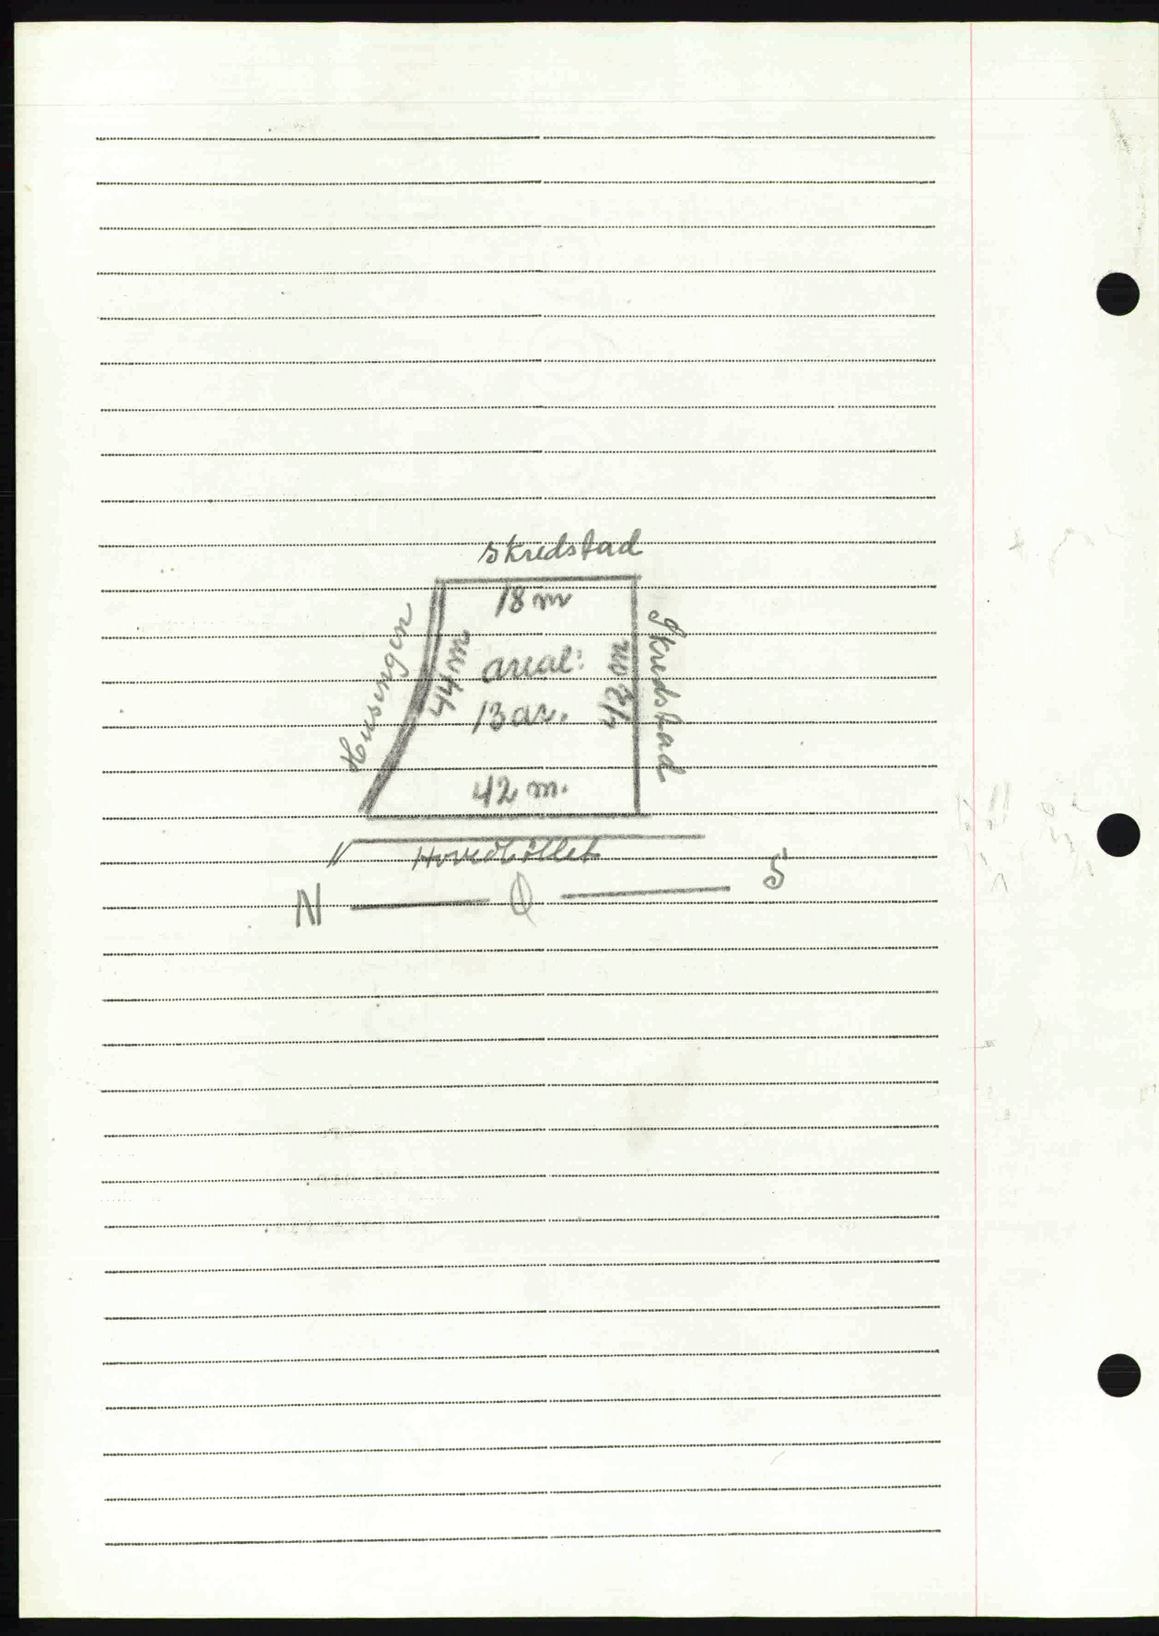 Skredstad
18 m
Husingen
44 m
areal:
13 ar.
43 m
Skredstad
42 m.
Hovedbøllet
N
Ø
S